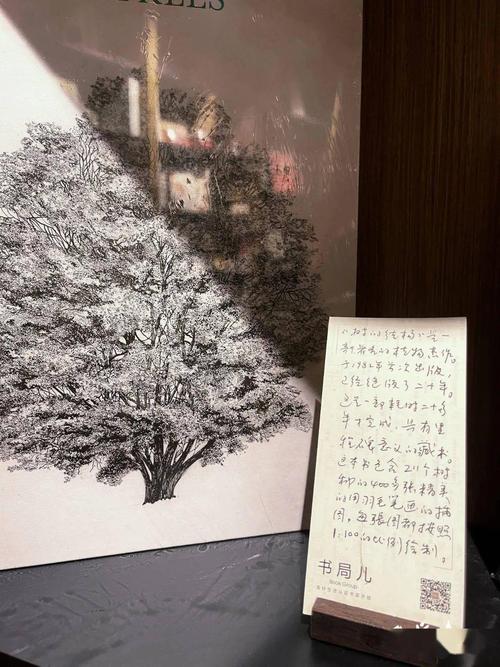 TREES
《树的结构》是一
部著名的植物杰作。
于1982年首次出版,
已经绝版了二十年。
这是一部耗时二十多
年才完成、具有里
程碑意义的藏书。
这本书包含211个树
种的400多张精美
的用羽毛笔画的插
图,每張图都按照
1:100的比例绘制。
书局儿
Book Group